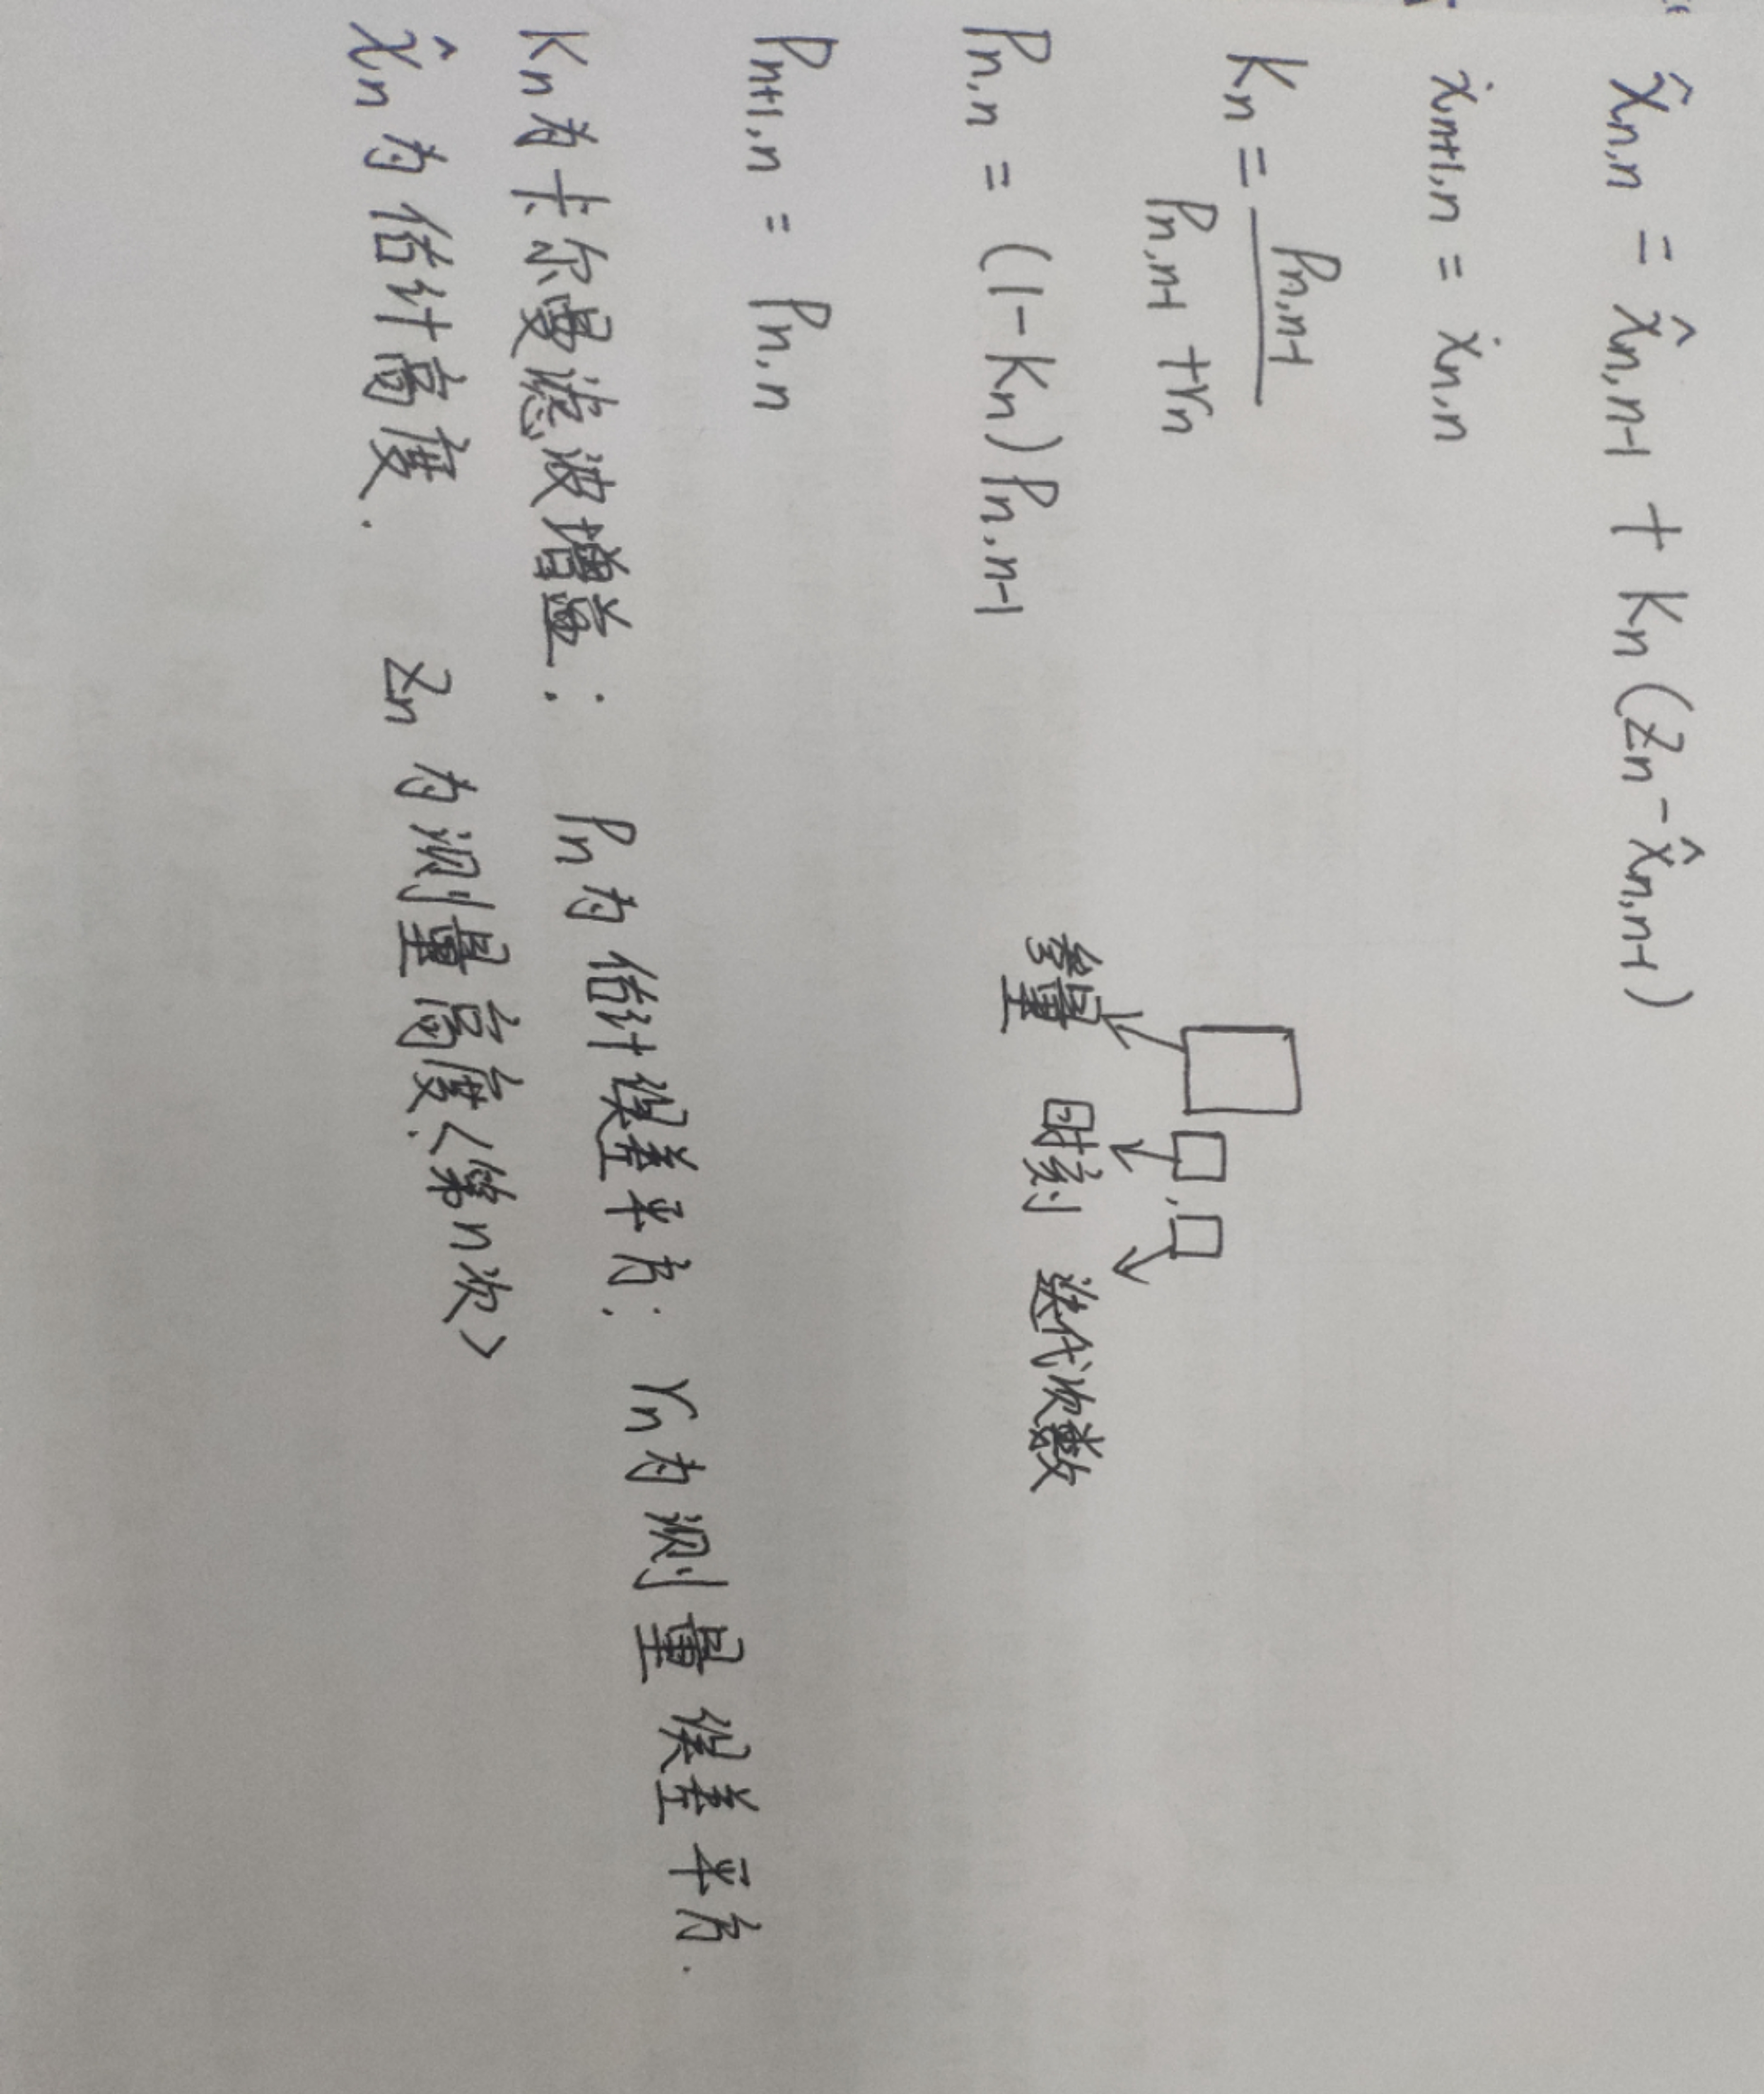 x̂n,n = x̂n,n-1 + Kn (Zn - x̂n,n-1)
ẋn+1,n = ẋn,n
Kn = Pn,n-1 / Pn,n-1 + rn
参量 时刻 迭代次数
Pn,n = (1-Kn) Pn,n-1
Pn+1,n = Pn,n
Kn为卡尔曼滤波增益; Pn为估计误差平方; rn为测量误差平方.
x̂n为估计高度. Zn为测量高度.<第n次>